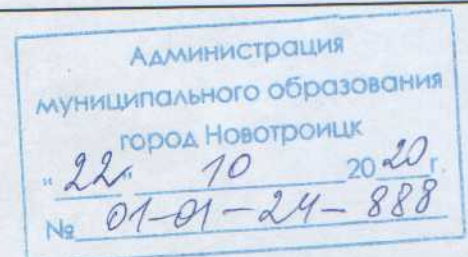 Администрация
муниципального образования
город Новотроицк
"22" 10 2020 г.
№ 01-01-24-888